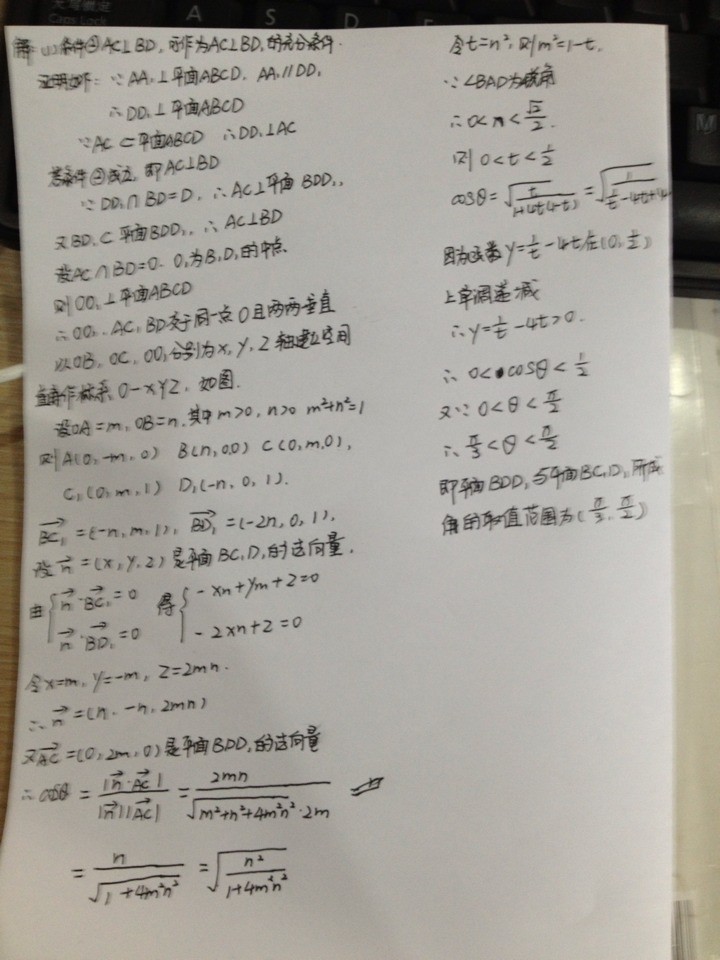 解:(1)条件②AC⊥BD,可作为AC⊥BD₁的充分条件.
证明如下: ∵AA₁⊥平面ABCD. AA₁//DD₁
∴DD₁⊥平面ABCD
∵AC⊂平面ABCD ∴DD₁⊥AC
若条件②成立,即AC⊥BD
∵DD₁∩BD=D, ∴AC⊥平面BDD₁,
又BD₁⊂平面BDD₁, ∴AC⊥BD
设AC∩BD=O. O₁为B₁D₁的中点
则OO₁⊥平面ABCD
∴OO₁. AC, BD交于同一点O且两两垂直
以OB, OC, OO₁分别为x, y, z轴建立空间
直角坐标系, O-xyz, 如图.
设OA=m, OB=n, 其中m>0, n>0 m²+n²=1
则A(0, -m, 0) B(n, 0,0) C(0, m, 0),
C₁(0, m, 1) D₁(-n, 0, 1).
BC₁=(-n, m, 1), BD₁=(-2n, 0, 1),
设n=(x, y, z)是平面BC₁D₁的法向量,
由{n·BC₁=0 得{-xn+ym+z=0
n·BD₁=0 -2xn+z=0
令x=m, y=-m, z=2mn.
∴n=(n. -n, 2mn)
又AC=(0, 2m, 0)是平面BDD₁的法向量
∴cosθ=|n·AC|/|n||AC|=2mn/√m²+n²+4m²n²·2m
=n/√1+4m²n²=√n²/1+4m²n²
令t=n², 则m²=1-t,
∵∠BAD为锐角
∴0<n<√2/2.
则0<t<1/2
cosθ=√t/1+4t(1-t)=
因为函数y=1/t-4t在(0, 1/2)
上单调递减
∴y=1/t-4t>0.
∴0<cosθ<1/2
又∵0<θ<π/2
∴π/3<θ<π/2
即平面BDD₁与平面BC₁D₁所成
角的取值范围为(π/3, π/2)
Caps Lock
A
S
D
F
M